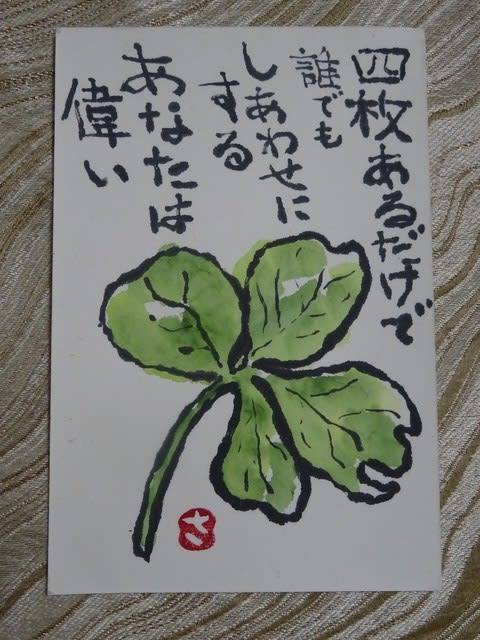 四枚あるだけで
誰でも
しあわせに
する
あなたは
偉い
さ